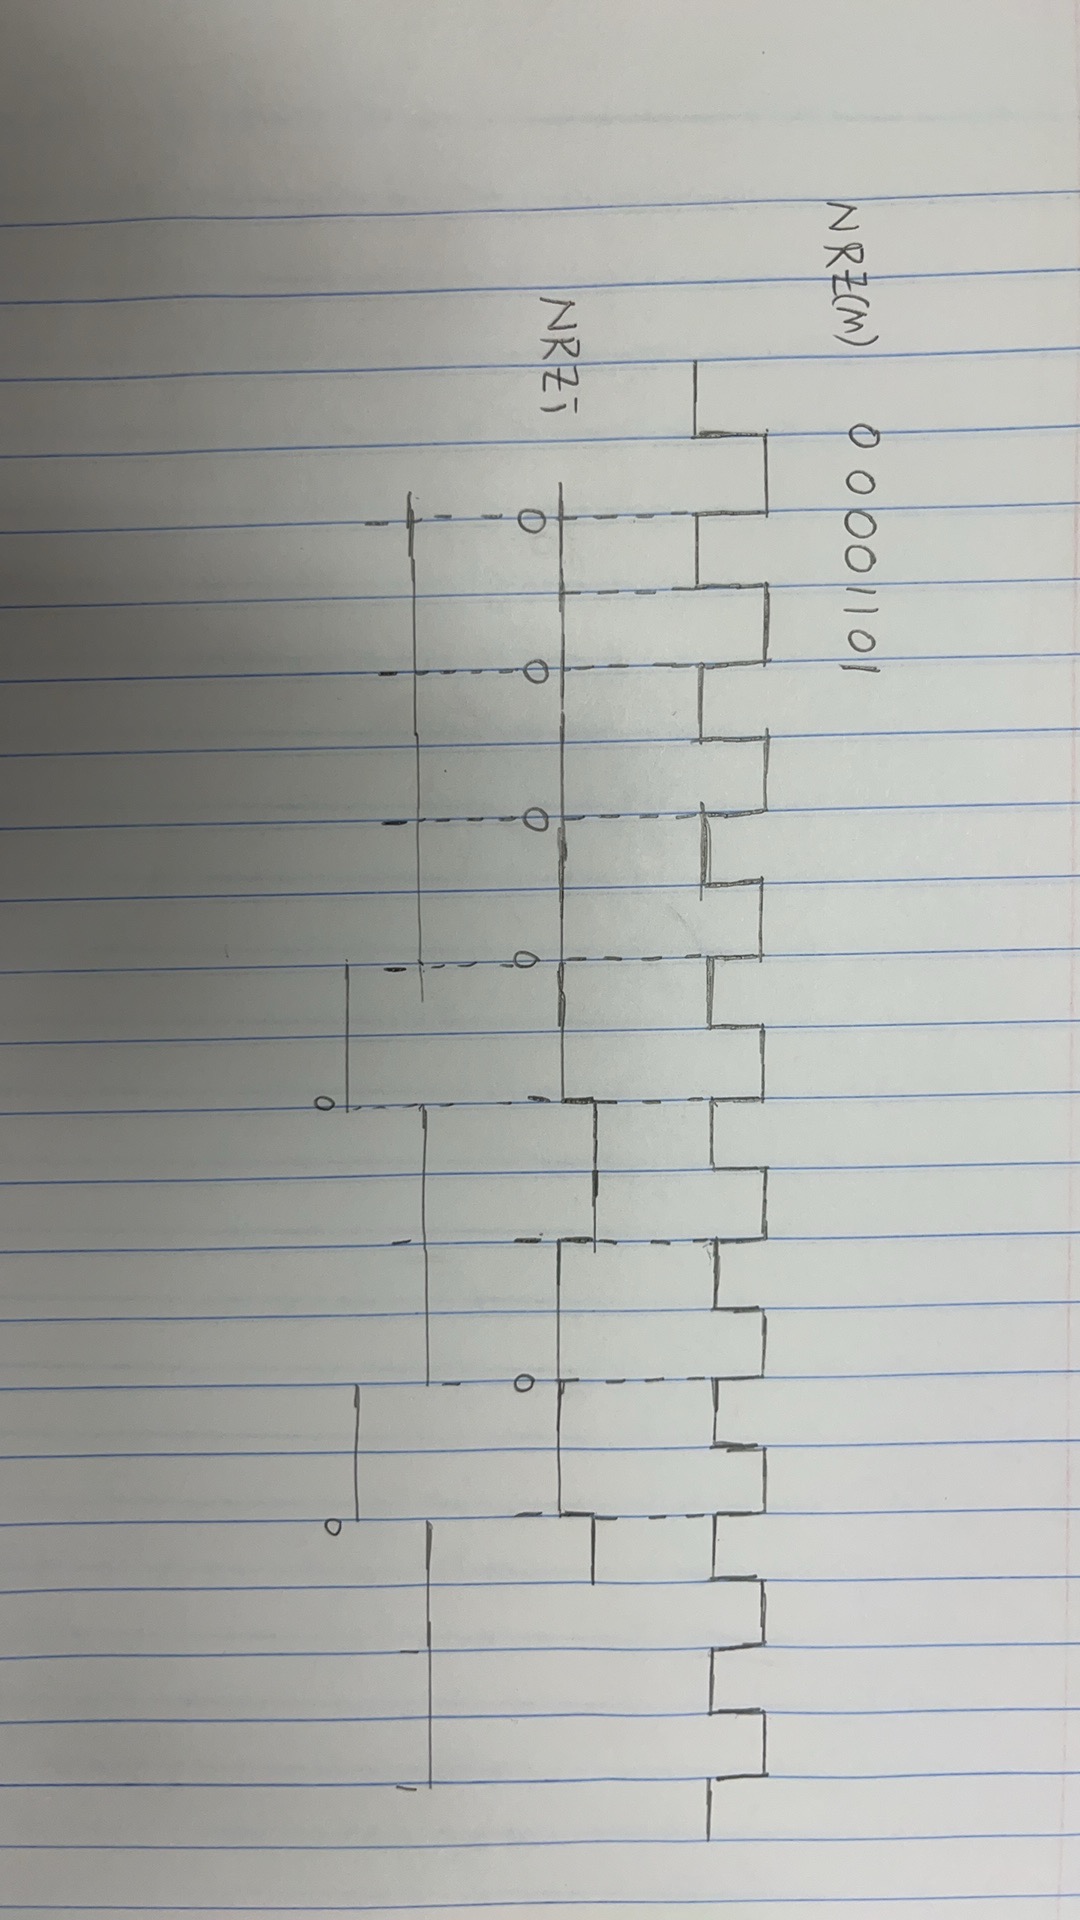 NRZ(M) 00001101
NRZi
0 0 0 0 0
0 0